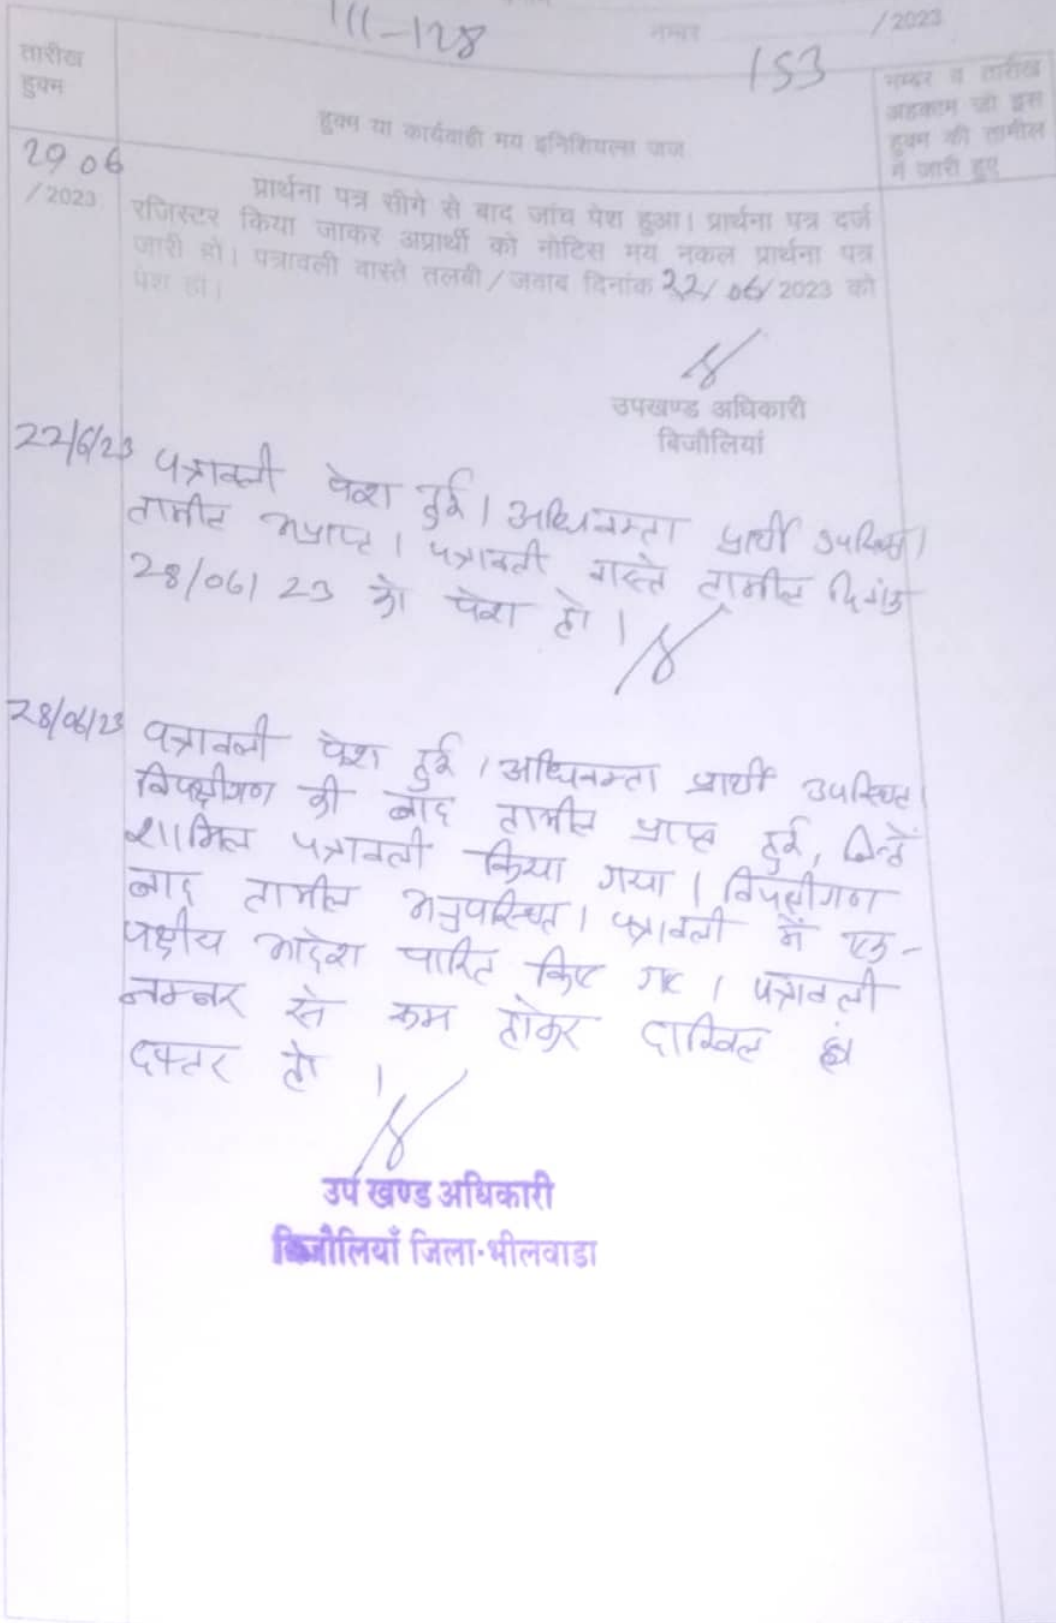 111-128
नम्बर 153 / 2023
तारीख
हुक्म
हुक्म या कार्यवाही मय इनिशियल्स जज
नम्बर व तारीख
अहकाम जो इस
हुक्म की तामील
में जारी हुए
2906
/ 2023
प्रार्थना पत्र सीगे से बाद जांच पेश हुआ। प्रार्थना पत्र दर्ज
रजिस्टर किया जाकर अप्रार्थी को नोटिस मय नकल प्रार्थना पत्र
जारी हो। पत्रावली वास्ते तलबी / जवाब दिनांक 22/06/2023 को
पेश हो।
उपखण्ड अधिकारी
बिजौलियां
22/6/23 पत्रावली पेश हुई। अधिवक्ता प्रार्थी उपस्थित।
तामील अप्राप्त। पत्रावली वास्ते तामील दिनांक
28/06/23 को पेश हो।
28/06/23 पत्रावली पेश हुई। अधिवक्ता प्रार्थी उपस्थित।
विपक्षीगण की बाद तामील प्राप्त हुई, जिन्हें
शामिल पत्रावली किया गया। विपक्षीगण
बाद तामील अनुपस्थित। पत्रावली में एक-
पक्षीय आदेश पारित किए गए। पत्रावली
नम्बर से कम होकर दाखिल
दफ्तर हो।
उप खण्ड अधिकारी
बिजौलियाँ जिला-भीलवाडा